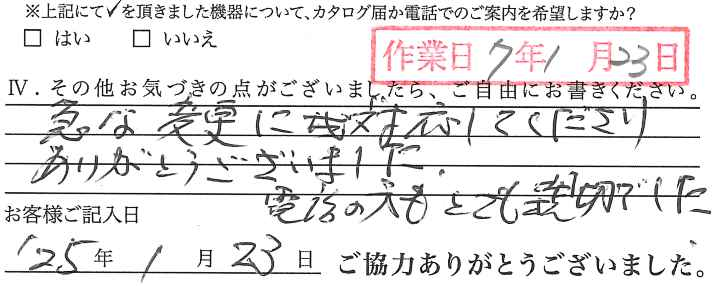 ※上記にて✓を頂きました機器について、カタログ届か電話でのご案内を希望しますか?
□ はい □ いいえ
作業日 7年1月23日
Ⅳ．その他お気づきの点がございましたら、ご自由にお書きください。
急な変更にも対応してくださり
ありがとうございました.
電話の方もとても親切でした
お客様ご記入日
'25年 1月 23日 ご協力ありがとうございました。